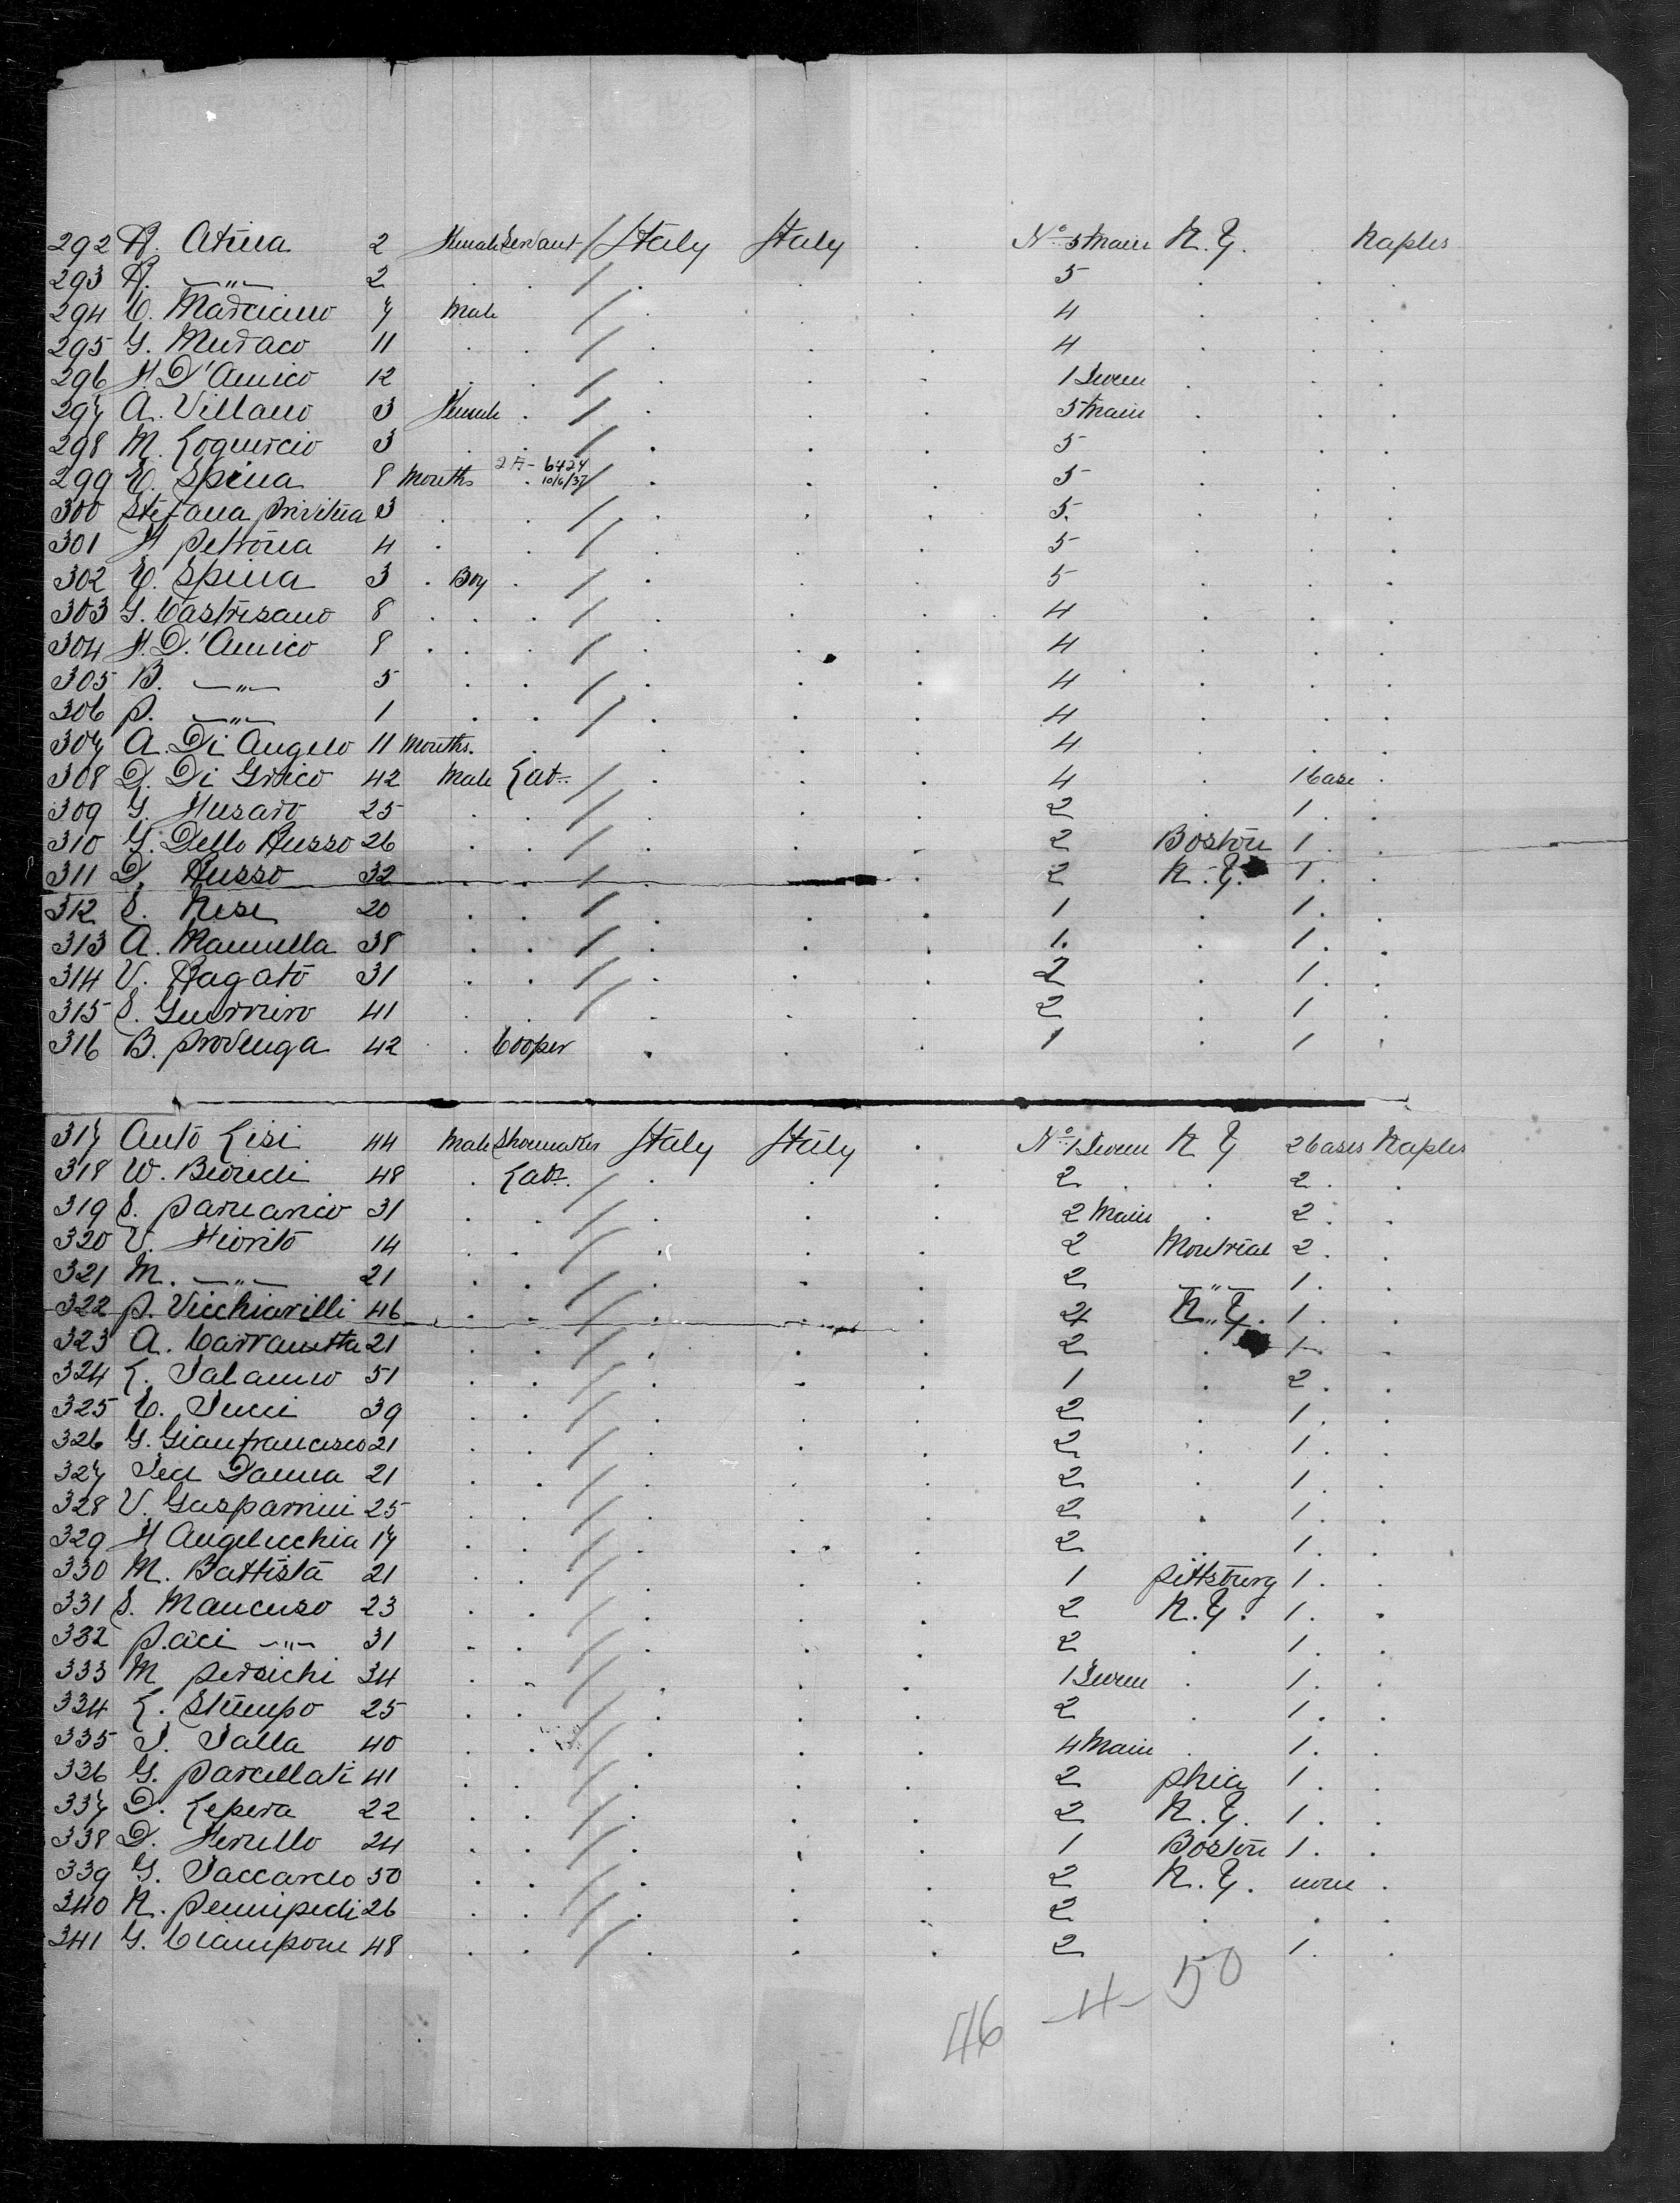 292 R. Atina 2 Female Servant / Italy Italy . No 5 Main N.Y. . Naples
293 R. —"— 2 . . / . . 5 . . .
294 C. Marcicino 7 Male / . . 4 . . .
295 G. Muraco 11 . . / . . . 4 . . .
296 F. D'Amico 12 . . / . . . 1 . . .
297 A. Villano 3 Female . / . . . 5 Main . . .
298 M. Loquercio 3 . . / . . . 5 . . .
299 C. Spina 8 Months 2A- 6424 10/6/37 . / . . . 5 . . .
300 Stefana 3 . . / . . . 5. . . .
301 F Petrona 4 . . / . . . 5 . . .
302 C. Spina 3 . Boy . / . . . 5 . . .
303 G. Castrisano 8 . . . / . . . 4 . . .
304 F. D.'Amico 8 . . . / . . . 4 . . .
305 B. —"— 5 . . / . . . 4 . . .
306 P. —"— 1 . . / . . . 4 . . .
307 A. Di Angelo 11 Months. . . . . 4 . . .
308 D. Di Grico 42 Male Labr. / . . . 4 . 1 Case .
309 G. Fusaro 25 . . / . . . 2 . 1 . .
310 G. Dello Russo 26 . . / . . . 2 Boston 1 . .
311 D. Russo 32 . . / . . 2 N.Y. 1 . .
312 S. Nese 20 . . / . . . 1 . 1 . .
313 A. Mannella 38 . . / . . . 1. . 1 . .
314 V. Ragato 31 . . / . . . 2 . 1 . .
315 S. Guerriero 41 . . / . . . 2 . 1 .
316 B. Provenga 42 . . Cooper . . . 1 . 1 .
317 Anto Lisi 44 Male Shoemaker Italy Italy . No 1 N Y 2 Cases Naples
318 W. 48 . Labr. / . . . 2 . . 2 . .
319 S. 31 . . / . . . 2 Main . 2 . .
320 V. Fiorito 14 . . / . . . 2 Montreal 2 . .
321 M. —"— 21 . . / . . . 2 —"— 1 . .
322 P. Vicchiarilli 46 . . / . . . 2 N.Y. 1 . .
323 A. Carranetta 21 . . / . . . 2 . 1 . .
324 L. 51 . . / . . . 1 . 2 . .
325 C. 39 . . / . . . 2 . 1 . .
326 G. Gianfrancisco 21 . . / . . . 2 . 1 . .
327 21 . . / . . . 2 . 1 . .
328 V. Gasparrini 25 . . / . . . 2 . 1 . .
329 F Angelucchia 17 . . / . . . 2 . 1 . .
330 M. Battista 21 . . / . . . 1 Pittsburg 1 . .
331 S. Mancuso 23 . . / . . . 2 N.Y. 1 . .
332 Paci —"— 31 . . / . . . 2 . 1 . .
333 M Persichi 34 . . / . . . 1 . 1 . .
334 L. Stumpo 25 . . / . . . 2 . 1 . .
335 40 . . / . . . 4 Main . 1 . .
336 G. Parcellati 41 . . / . . . 2 Phia 1 . .
337 D. Lepera 22 . . / . . . 2 N.Y. 1 . .
338 D. 24 . . / . . . 1 Boston 1 . .
339 G. 50 . . / . . . 2 N.Y. none .
340 N. 26 . . / . . . 2 . . .
341 G. Ciampone 48 . . / . . . 2 . 1 . .
46 - 4 - 50